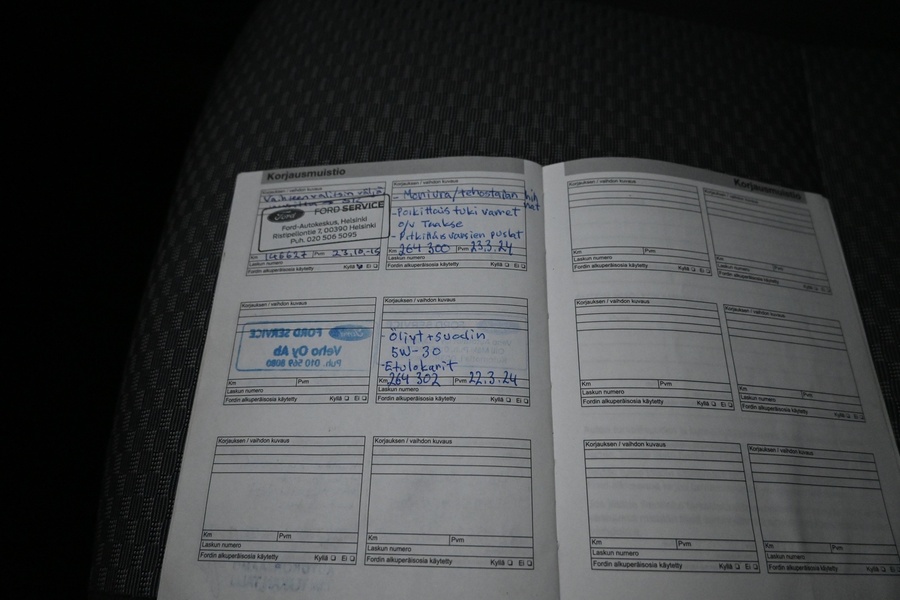 Korjausmuistio
Korjauksen / vaihdon kuvaus
Vaihteenvalitsin väljä
Ford
FORD SERVICE
Ford-Autokeskus, Helsinki
Ristipellontie 7, 00390 Helsinki
Puh. 020 506 5095
Km 146627 Pvm 23.10.-15
Laskun numero
Fordin alkuperäisosia käytetty Kyllä Ei
Korjauksen / vaihdon kuvaus
- Moniura/tehostajan hih
nat
- Poikittais tuki varret
o/v Taakse
- Pitkittäis varsien puslat
Km 264 300 Pvm 23.3.24
Laskun numero
Fordin alkuperäisosia käytetty Kyllä Ei
Korjauksen / vaihdon kuvaus
FORD SERVICE
Veho Oy Ab
Puh. 010 569 8080
Km Pvm
Laskun numero
Fordin alkuperäisosia käytetty Kyllä Ei
Korjauksen / vaihdon kuvaus
- Öljyt + suodin
5W-30
- Etulokarit
Km 264 302 Pvm 22.3.24
Laskun numero
Fordin alkuperäisosia käytetty Kyllä Ei
Korjauksen / vaihdon kuvaus
Km Pvm
Laskun numero
Fordin alkuperäisosia käytetty Kyllä Ei
Korjauksen / vaihdon kuvaus
Km Pvm
Laskun numero
Fordin alkuperäisosia käytetty Kyllä Ei
Korjausmuistio
Korjauksen / vaihdon kuvaus
Km Pvm
Laskun numero
Fordin alkuperäisosia käytetty Kyllä Ei
Korjauksen / vaihdon kuvaus
Km Pvm
Laskun numero
Fordin alkuperäisosia käytetty Kyllä Ei
Korjauksen / vaihdon kuvaus
Km Pvm
Laskun numero
Fordin alkuperäisosia käytetty Kyllä Ei
Korjauksen / vaihdon kuvaus
Km Pvm
Laskun numero
Fordin alkuperäisosia käytetty Kyllä Ei
Korjauksen / vaihdon kuvaus
Km Pvm
Laskun numero
Fordin alkuperäisosia käytetty Kyllä Ei
Korjauksen / vaihdon kuvaus
Km Pvm
Laskun numero
Fordin alkuperäisosia käytetty Kyllä Ei